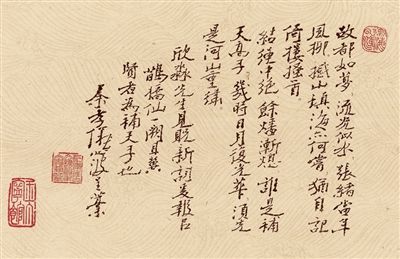 故都如夢流光似水張緒當年
風柳撼山填海亦何嘗猶自記
倚樓搔首
結繩中絕餘燼漸熄誰是補
天高手幾時日月復光華須先
是河山重繡
欣淼先生見貺新詞爰報吕
鵲橋仙一闋且冀
賢者為補天手也
秦孝儀